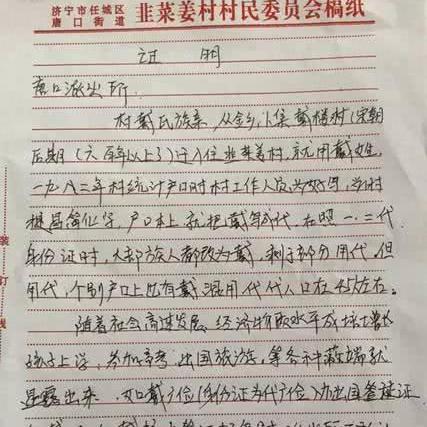 济宁市任城区
唐口街道 韭菜姜村村民委员会稿纸
证明
唐口派出所:
村戴氏族亲,从金乡卜集戴楼村(宋朝
后期(六百年以上了)迁入住韭菜姜村,就用戴姓,
一九八二年村统计户口时村工作人员为好写,当时
提倡简化字,户口本上就把戴写成代,在照一、二代
身份证时,大部族人都改为戴,剩下部分用代,但
用代,个别户口上也有戴混用代代人口在45左右。
随着社会高速发展,经济物质水平成倍增长
孩子上学,参加高考出国旅游,等各种弊端就
显露出来,如戴广位(身份证为代广位)办出国签证
装订线